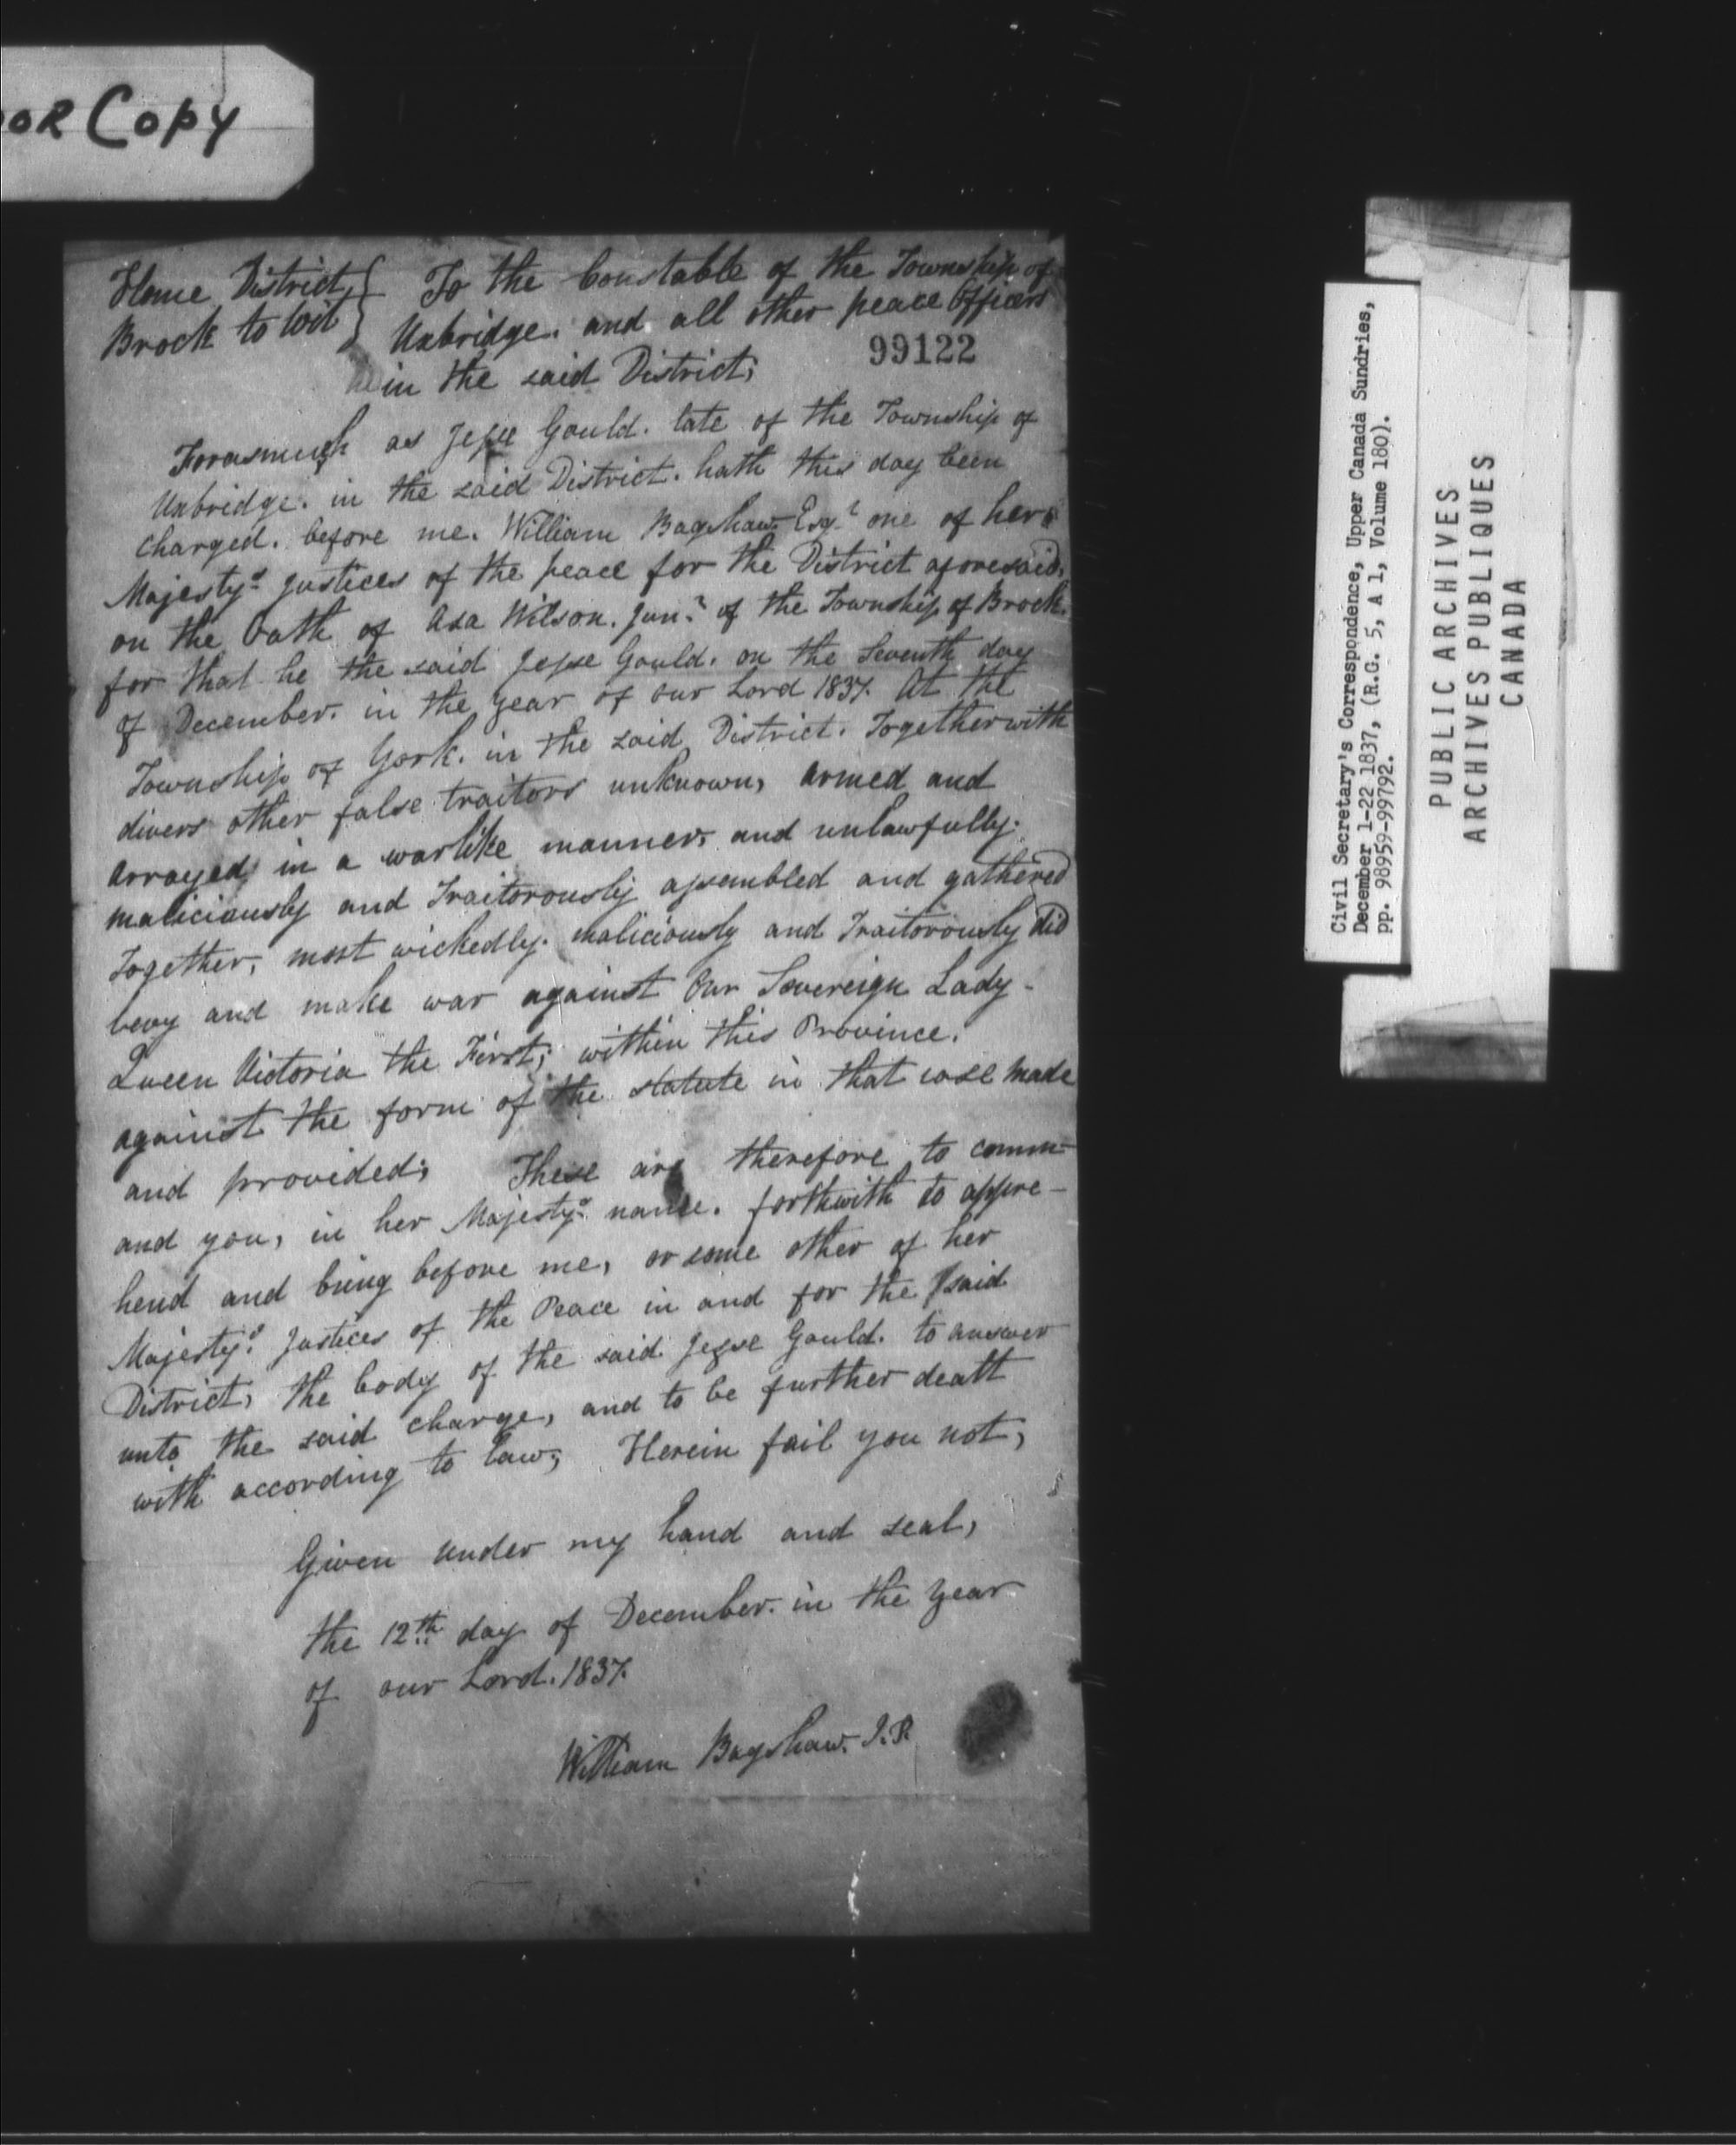 OOR Copy
Home District } To the Constable of the Township of
Brock to Wit } Uxbridge. and all other peace Officers
99122
in the said District;
Forasmuch as Jesse Gould. late of the Township of
Uxbridge. in the said District. hath this day been
charged. before me. William Bagshaw. Esqr. one of her
Majestys. justices of the peace for the District aforesaid.
on the Oath of Asa Wilson. Junr. of the Township of Brock.
for that he the said Jesse Gould. on the Seventh day
of December. in the year of our Lord 1837. At the
Township of York. in the said District. Together with
divers other false traitors unknown, armed and
arrayed in a warlike manner, and unlawfully.
maliciously and Traitorously assembled and gathered
Together, most wickedly. maliciously and Traitorously did
levy and make war against Our Sovereign Lady -
Queen Victoria the First; within this Province.
against the form of the statute in that case made
and provided; These are therefore to comm-
and you, in her Majestys. name. forthwith to appre-
hend and bring before me, or some other of her
Majestys. Justices of the Peace in and for the said
District, the body of the said Jesse Gould. to answer
unto the said charge, and to be further dealt
with according to law; Herein fail you not,
Given under my hand and seal,
the 12th day of December. in the year
of our Lord. 1837.
William Bagshaw. J.P.
Civil Secretary's Correspondence, Upper Canada Sundries,
December 1-22 1837, (R.G. 5, A 1, Volume 180).
pp. 98959-99792.
PUBLIC ARCHIVES
ARCHIVES PUBLIQUES
CANADA